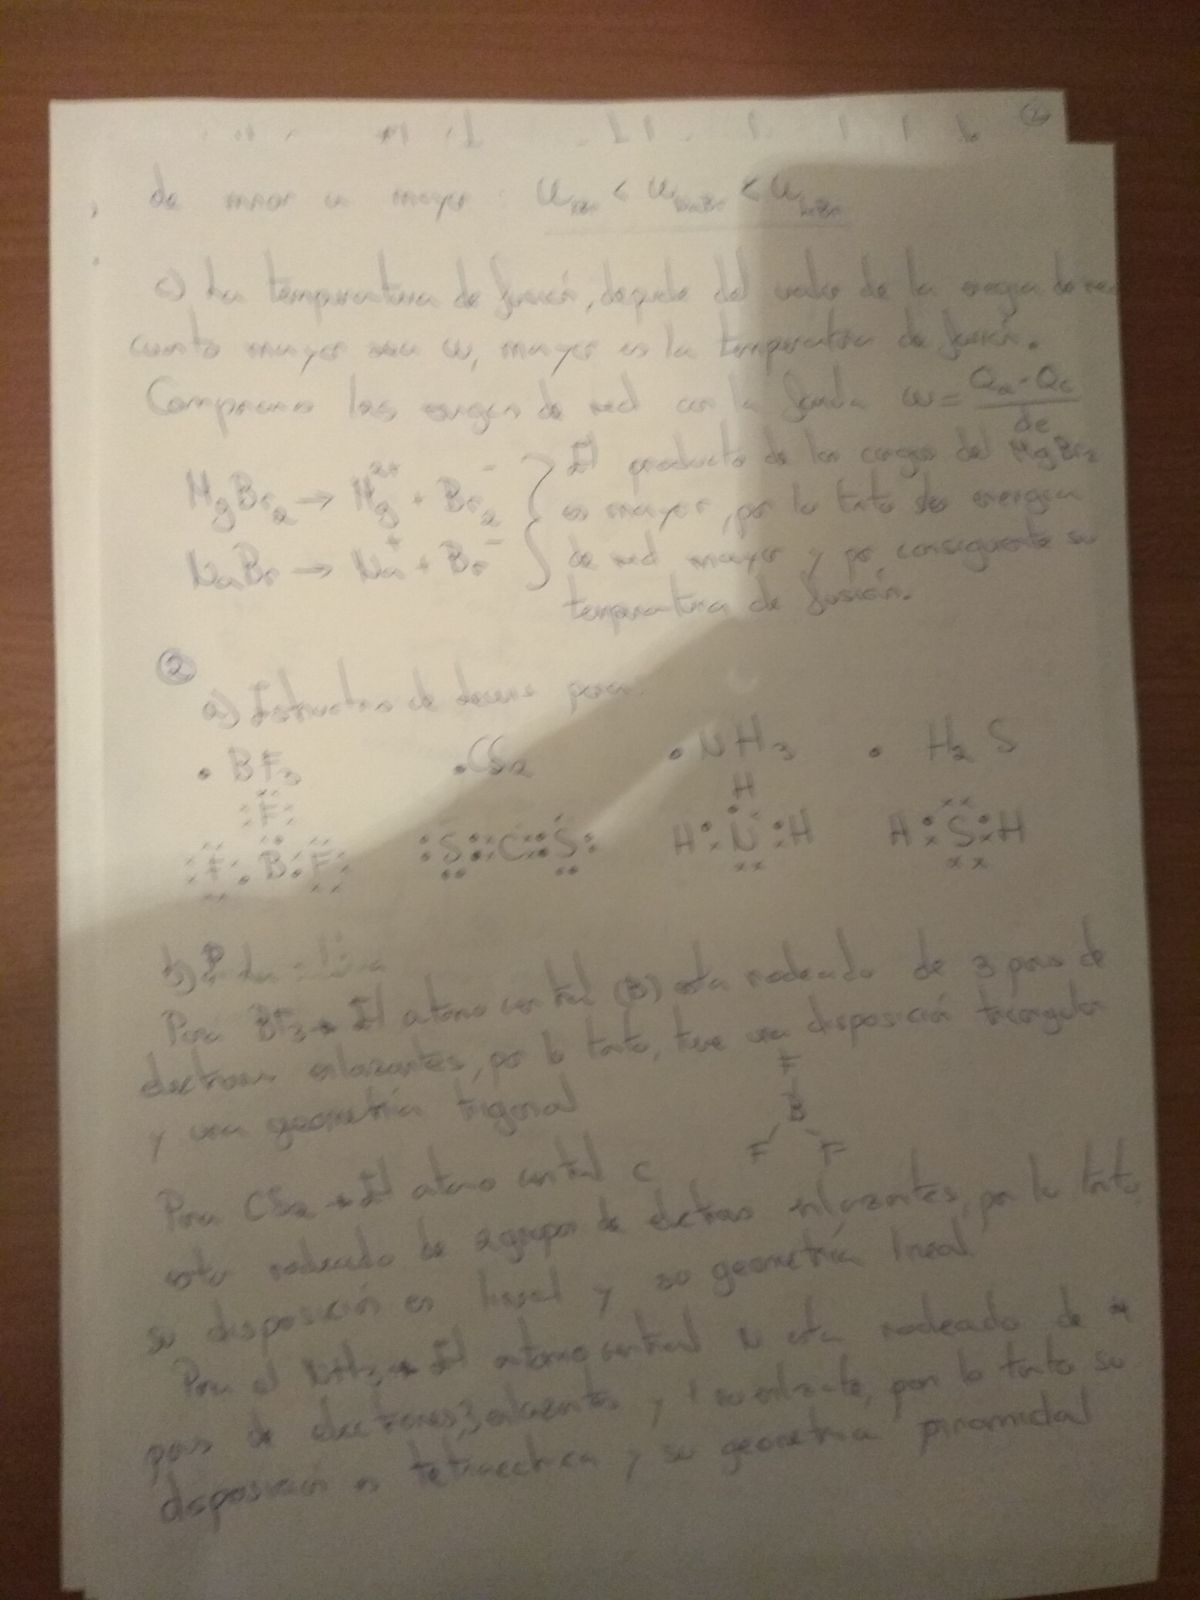 2
de menor a mayor: U_KBr < U_NaBr < U_LiBr
c) La temperatura de fusión, depende del valor de la energia de red
cuanto mayor sea U, mayor es la temperatura de fusión.
Comparamos las energias de red con la formula U = Qa·Qc / dc
MgBr2 → Mg2+ + Br2-
NaBr → Na+ + Br-
El producto de las cargas del MgBr2
es mayor, por lo tanto su energia
de red mayor y por consiguiente su
temperatura de fusión.
2
a) Estructura de Lewis para:
• BF3 • CS2 • NH3 • H2S
F H
F B F S C S H N H H S H
b)
Para BF3 → El atomo central (B) esta rodeado de 3 pares de
electrones enlazantes, por lo tanto, tiene una disposición triangular
y una geometría trigonal
F
B
F F
Para CS2 → El atomo central C
esta rodeado de 2 grupos de electrones enlazantes, por lo tanto
su disposición es lineal y su geometría lineal.
Para el NH3 → El atomo central N esta rodeado de 4
pares de electrones, 3 enlazantes y 1 , por lo tanto su
disposición es tetraedrica y su geometria piramidal